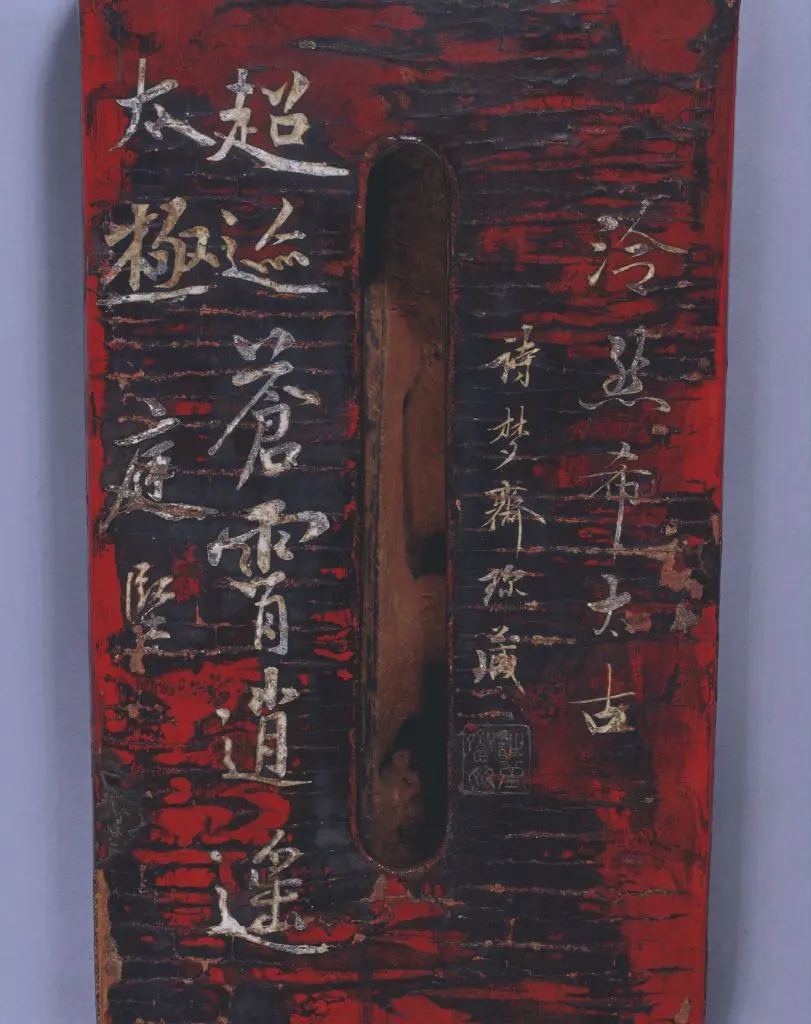 泠然希太古
詩梦齋珎藏
超迹蒼霄逍遥
太極 庭堅